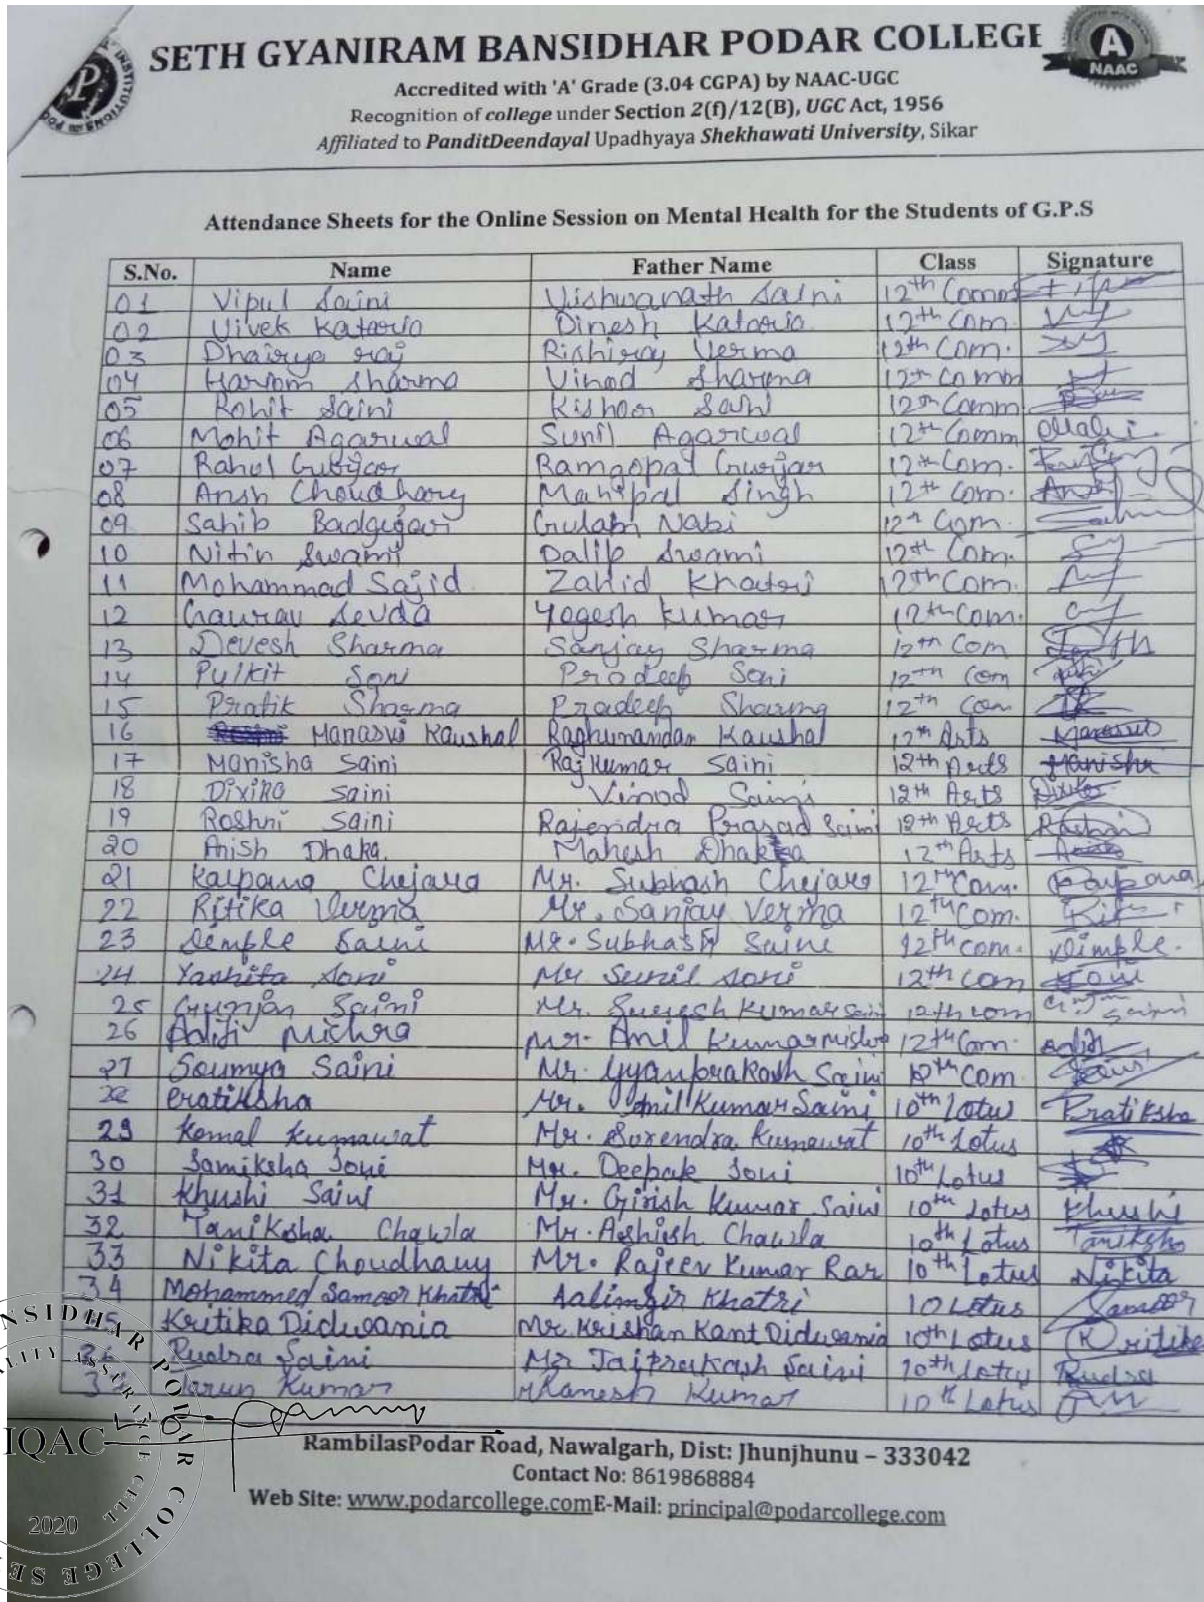 SETH GYANIRAM BANSIDHAR PODAR COLLEGE
A
NAAC
Accredited with 'A' Grade (3.04 CGPA) by NAAC-UGC
Recognition of college under Section 2(f)/12(B), UGC Act, 1956
Affiliated to PanditDeendayal Upadhyaya Shekhawati University, Sikar
Attendance Sheets for the Online Session on Mental Health for the Students of G.P.S
S.No. Name Father Name Class Signature
01 Vipul Saini Vishwanath Saini 12th Comm
02 Vivek Kataria Dinesh Kataria 12th Com.
03 Dhairya raj Rishiraj Verma 12th Com.
04 Hariom Sharma Vinod Sharma 12th Comm
05 Rohit Saini Kishoor Saini 12th Comm
06 Mohit Agarwal Sunil Agarwal 12th Comm
07 Rahul Ramgopal Gurjar 12th Com.
08 Ansh Choudhary Mahipal Singh 12th Com. Ansh
09 Sahib Gulam Nabi 12th Com.
10 Nitin Swami Dalip Swami 12th Com.
11 Mohammad Sajid Zahid Khatri 12th Com.
12 Gaurav Sevda Yogesh Kumar 12th Com.
13 Devesh Sharma Sanjay Sharma 12th Com
14 Pulkit Soni Pradeep Soni 12th Com
15 Pratik Sharma Pradeep Sharma 12th Com
16 Manasvi Kaushal Raghunandan Kaushal 12th Arts
17 Manisha Saini Raj Kumar Saini 12th Arts Manisha
18 Dixika Saini Vinod Saini 12th Arts
19 Roshni Saini Rajendra Prasad Saini 12th Arts Roshni
20 Anish Dhaka Mahesh Dhaka 12th Arts
21 Kalpana Chejara Mr. Subhash Chejara 12th Com. Kalpana
22 Ritika Verma Mr. Sanjay Verma 12th Com.
23 Dimple Saini Mr. Subhash Saini 12th com. Dimple.
24 Yashita Soni Mr Sunil Soni 12th com
25 Gunjan Saini Mr. Suresh Kumar Saini 12th com Gunjan Saini
26 Aditi Mishra Mr. Anil Kumar Mishra 12th Com.
27 Soumya Saini Mr. Gyanprakash Saini 12th Com
Pratiksha Mr. Anil Kumar Saini 10th Lotus Pratiksha
29 Komal Kumawat Mr. Surendra Kumawat 10th Lotus
30 Samiksha Soni Mr. Deepak Soni 10th Lotus
31 Khushi Saini Mr. Girish Kumar Saini 10th Lotus Khushi
32 Taniksha Chawla Mr. Ashish Chawla 10th Lotus Taniksha
33 Nikita Choudhary Mr. Rajeev Kumar Rar 10th Lotus Nikita
34 Mohammed Sameer Khatri Aalimgir Khatri 10 Lotus Sameer
35 Kritika Didwania Mr. Krishan Kant Didwania 10th Lotus Kritika
Rudra Saini Mr Jaiprakash Saini 10th Lotus Rudra
Kumar Kumar 10th Lotus
IQAC
2020
RambilasPodar Road, Nawalgarh, Dist: Jhunjhunu – 333042
Contact No: 8619868884
Web Site: www.podarcollege.comE-Mail: principal@podarcollege.com